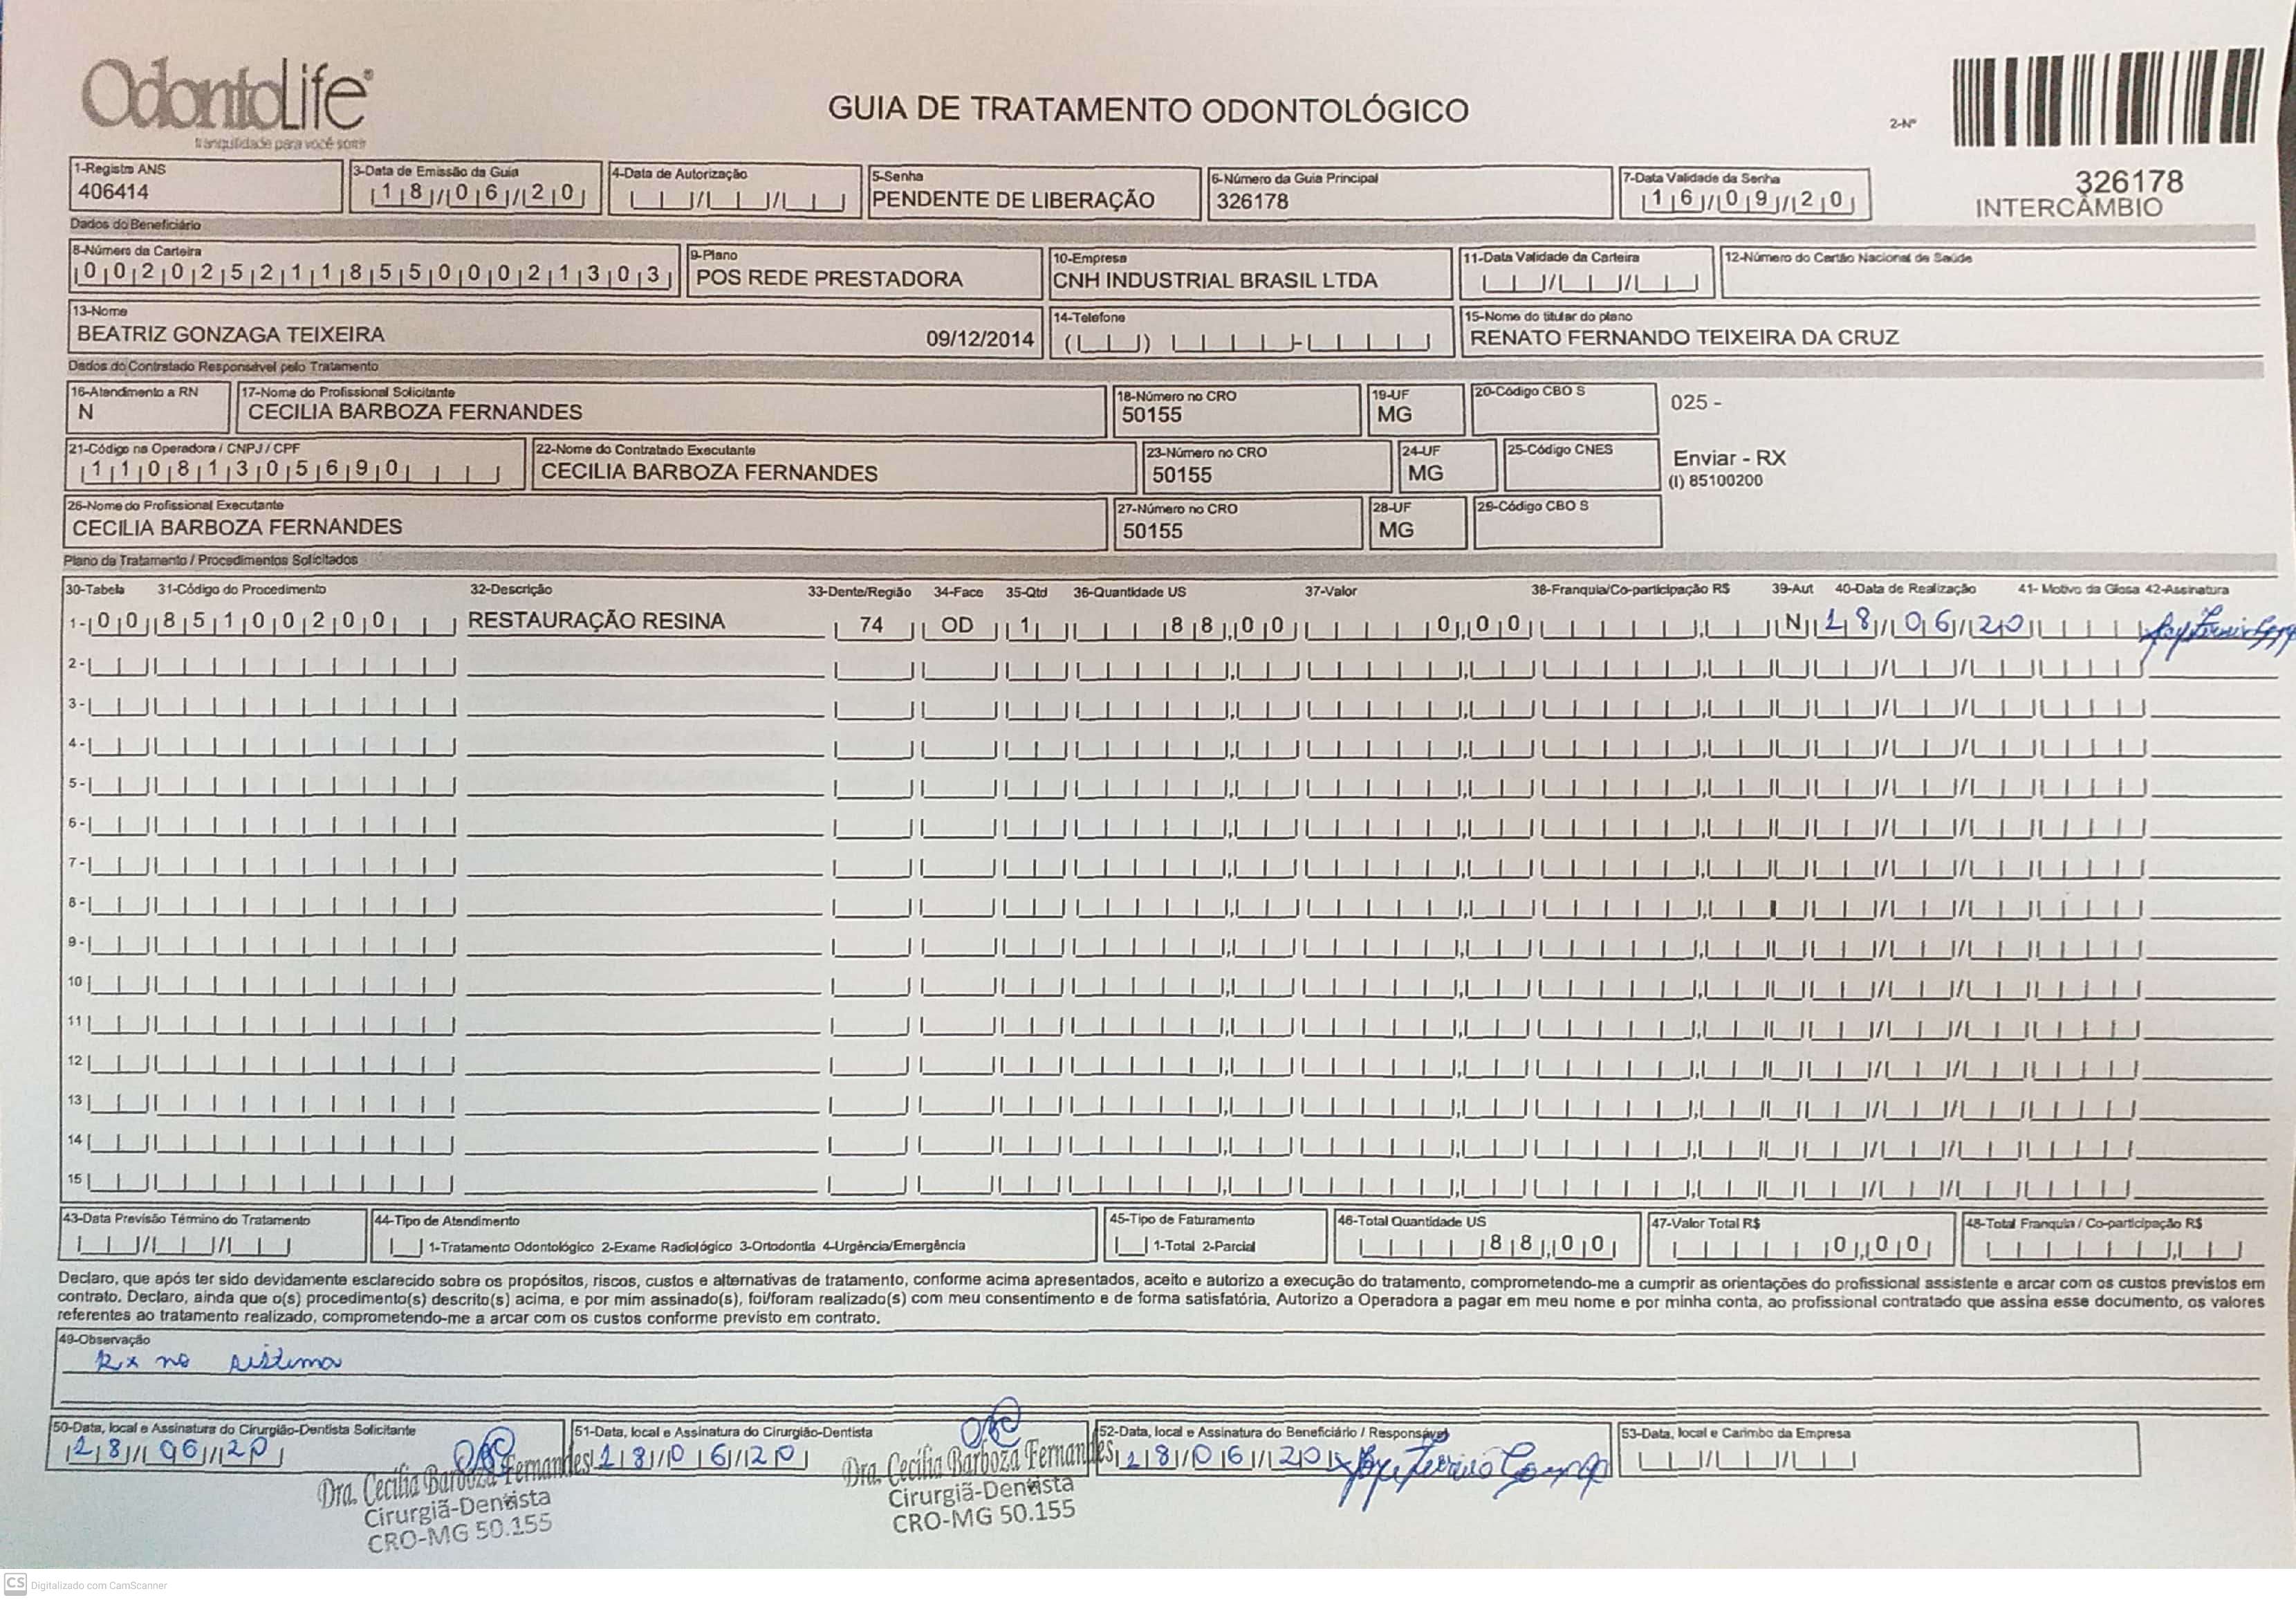 OdontoLife®
tranquilidade para você sorrir
GUIA DE TRATAMENTO ODONTOLÓGICO
2-Nº
326178
INTERCÂMBIO
1-Registro ANS
406414
3-Data de Emissão da Guia
18/06/20
4-Data de Autorização
5-Senha
PENDENTE DE LIBERAÇÃO
6-Número da Guia Principal
326178
7-Data Validade da Senha
16/09/20
Dados do Beneficiário
8-Número da Carteira
00202521185500021303
9-Plano
POS REDE PRESTADORA
10-Empresa
CNH INDUSTRIAL BRASIL LTDA
11-Data Validade da Carteira
12-Número do Cartão Nacional de Saúde
13-Nome
BEATRIZ GONZAGA TEIXEIRA 09/12/2014
14-Telefone
15-Nome do titular do plano
RENATO FERNANDO TEIXEIRA DA CRUZ
Dados do Contratado Responsável pelo Tratamento
16-Atendimento a RN
N
17-Nome do Profissional Solicitante
CECILIA BARBOZA FERNANDES
18-Número no CRO
50155
19-UF
MG
20-Código CBO S
025 -
21-Código na Operadora / CNPJ / CPF
11081305690
22-Nome do Contratado Executante
CECILIA BARBOZA FERNANDES
23-Número no CRO
50155
24-UF
MG
25-Código CNES
Enviar - RX
(I) 85100200
26-Nome do Profissional Executante
CECILIA BARBOZA FERNANDES
27-Número no CRO
50155
28-UF
MG
29-Código CBO S
Plano de Tratamento / Procedimentos Solicitados
30-Tabela 31-Código do Procedimento 32-Descrição 33-Dente/Região 34-Face 35-Qtd 36-Quantidade US 37-Valor 38-Franquia/Co-participação R$ 39-Aut 40-Data de Realização 41- Motivo da Glosa 42-Assinatura
1- 00 85100200 RESTAURAÇÃO RESINA 74 OD 1 88,00 0,00 N 18/06/20
2-
3-
4-
5-
6-
7-
8-
9-
10
11
12
13
14
15
43-Data Previsão Término do Tratamento
44-Tipo de Atendimento
1-Tratamento Odontológico 2-Exame Radiológico 3-Ortodontia 4-Urgência/Emergência
45-Tipo de Faturamento
1-Total 2-Parcial
46-Total Quantidade US
88,00
47-Valor Total R$
0,00
48-Total Franquia / Co-participação R$
Declaro, que após ter sido devidamente esclarecido sobre os propósitos, riscos, custos e alternativas de tratamento, conforme acima apresentados, aceito e autorizo a execução do tratamento, comprometendo-me a cumprir as orientações do profissional assistente e arcar com os custos previstos em
contrato. Declaro, ainda que o(s) procedimento(s) descrito(s) acima, e por mim assinado(s), foi/foram realizado(s) com meu consentimento e de forma satisfatória. Autorizo a Operadora a pagar em meu nome e por minha conta, ao profissional contratado que assina esse documento, os valores
referentes ao tratamento realizado, comprometendo-me a arcar com os custos conforme previsto em contrato.
49-Observação
Rx no sistema
50-Data, local e Assinatura do Cirurgião-Dentista Solicitante
18/06/20
Dra. Cecília Barboza Fernandes
Cirurgiã-Dentista
CRO-MG 50.155
51-Data, local e Assinatura do Cirurgião-Dentista
18/06/20
Dra. Cecília Barboza Fernandes
Cirurgiã-Dentista
CRO-MG 50.155
52-Data, local e Assinatura do Beneficiário / Responsável
18/06/20
53-Data, local e Carimbo da Empresa
CS Digitalizado com CamScanner